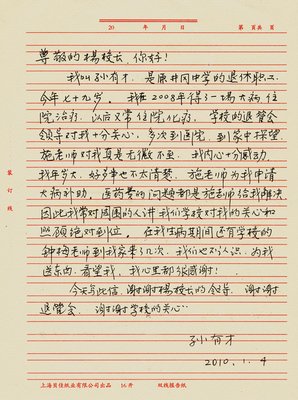 20 年 月 日 第 页共 页
尊敬的杨校长，你好！
我叫孙有才，是康井冈中学的退休职工
今年七十九岁。我在2008年得了一场大病住
院治疗，以后又常住院化疗。学校的退管会
领导对我十分关心，多次到医院，到家中探望。
施老师对我真是无微不至。我内心十分感动。
我年岁大，好多事也不太清楚。施老师为我申请
大病补助，医药费的问题都是施老师给我解决
因此我常对周围的人讲我们学校对我的关心和
照顾绝对到位。在我生病期间还有学校的
钟梅老师到我家来了几次，我们也不认识，为我
送东西，看望我，我心里都很感谢！
今天写此信，谢谢杨校长的领导，谢谢
退管会，谢谢学校的关心。
孙有才
2010.1.4
装订线
上海贝佳纸业有限公司出品 16开 双线报告纸